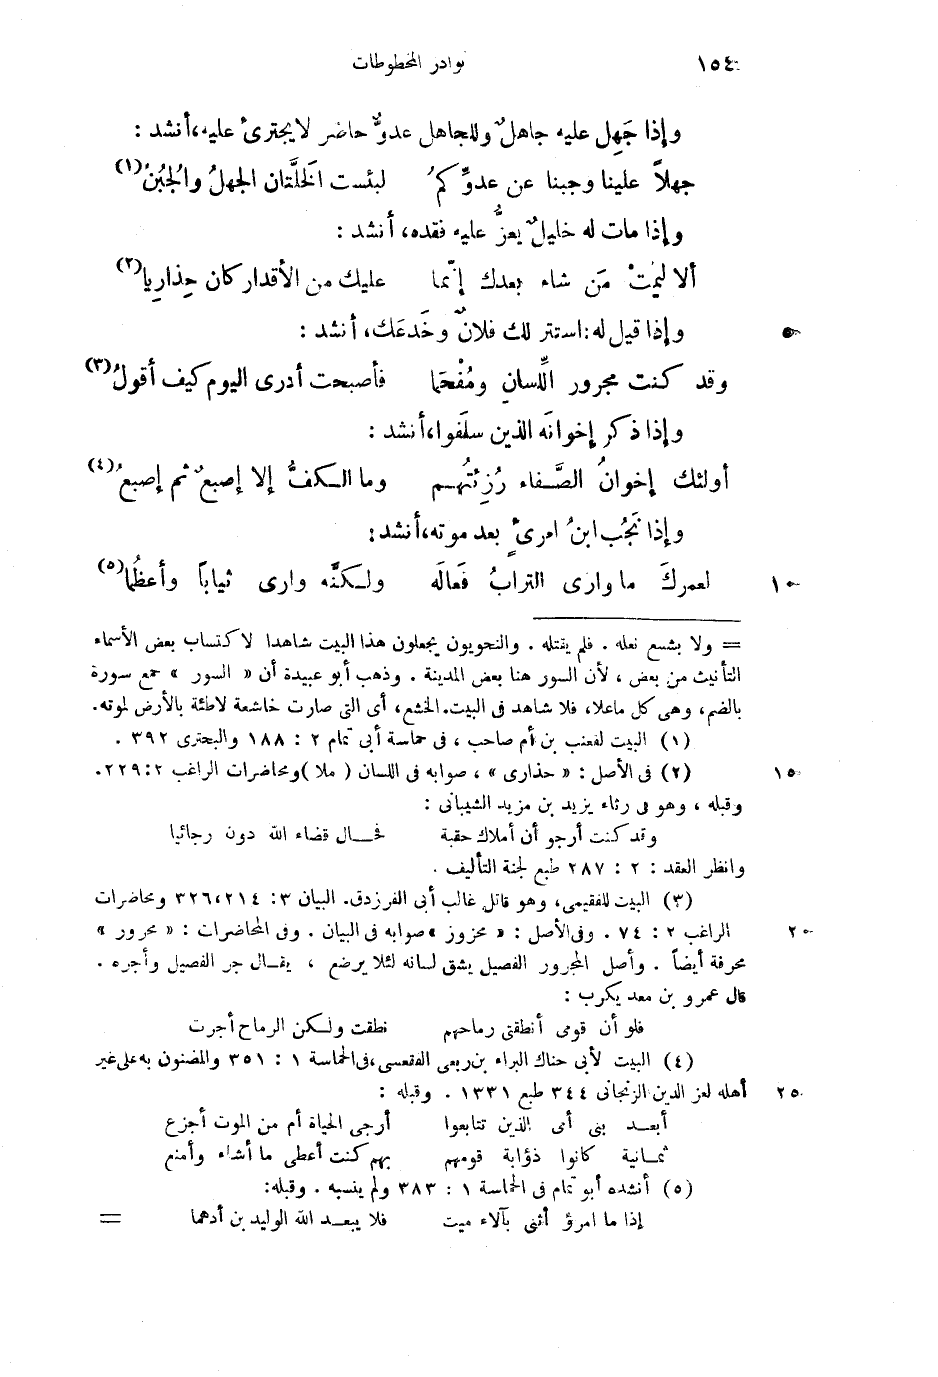 ١٥٤ نوادر المخطوطات
وإذا جَهِل عليه جاهلٌ وللجاهل عدوٌّ حاضر لا يجترئ عليه، أنشد :
جهلاً علينا وجبنا عن عدوِّكمُ لبئست الخَلَّتان الجهلُ والجُبُنُ(١)
وإذا مات له خليلٌ يعزُّ عليه فقده، أنشد :
ألا ليَمُتْ مَن شاء بعدك إنّما عليك من الأقدار كان حِذاريا(٢)
وإذا قيل له: استتر لك فلانٌ وخَدعَك، أنشد :
وقد كنت مجرور اللِّسانِ ومُفْحَما فأصبحت أدرى اليوم كيف أقولُ(٣)
وإذا ذكر إخوانَه الذين سلَفوا، أنشد :
أولئك إخوانُ الصَّفاء رُزِئتُهم وما الكفُّ إلا إصبعٌ ثم إصبعُ(٤)
وإذا نَجُب ابنُ امرئٍ بعد موته، أنشد:
١٠ لعمركَ ما وارى الترابُ فَعالَه ولكنَّه وارى ثياباً وأعظُما(٥)
= ولا بشسع نعله . فلم يقتله . والنحويون يجعلون هذا البيت شاهدا لاكتساب بعض الأسماء
التأنيث من بعض ، لأن السور هنا بعض المدينة . وذهب أبو عبيدة أن « السور » جمع سورة
بالضم، وهى كل ماعلا، فلا شاهد فى البيت. الخشع، أى التى صارت خاشعة لاطئة بالأرض لموته.
(١) البيت لقعنب بن أم صاحب ، فى حماسة أبى تمام ٢ : ١٨٨ والبحترى ٣٩٢ .
١٥ (٢) فى الأصل : « حذارى » ، صوابه فى اللسان ( ملا ) ومحاضرات الراغب ٢ : ٢٢٩.
وقبله ، وهو فى رثاء يزيد بن مزيد الشيبانى :
وقد كنت أرجو أن أملاك حقبة فحال قضاء الله دون رجائيا
وانظر العقد : ٢ : ٢٨٧ طبع لجنة التأليف .
(٣) البيت للفقيمى، وهو قاتل غالب أبى الفرزدق. البيان ٣ : ٢١٤، ٣٢٦ ومحاضرات
٢٠ الراغب ٢ : ٧٤ . وفى الأصل : « محزوز » صوابه فى البيان . وفى المحاضرات : « محرور »
محرفة أيضاً . وأصل المجرور الفصيل يشق لسانه لئلا يرضع ، يقال جر الفصيل وأجره .
قال عمرو بن معد يكرب :
فلو أن قومى أنطقتنى رماحهم نطقت ولكن الرماح أجرت
(٤) البيت لأبى حناك البراء بن ربعى الفقعسى، فى الحماسة ١ : ٣٥١ والمضنون به على غير
٢٥ أهله لعز الدين الزنجانى ٣٤٤ طبع ١٣٣١ . وقبله :
أبعد بنى أمى الذين تتابعوا أرجى الحياة أم من الموت أجزع
ثمانية كانوا ذؤابة قومهم بهم كنت أعطى ما أشاء وأمنع
(٥) أنشده أبو تمام فى الحماسة ١ : ٣٨٣ ولم ينسبه . وقبله:
إذا ما امرؤ أثنى بآلاء ميت فلا يبعد الله الوليد بن أدهما =